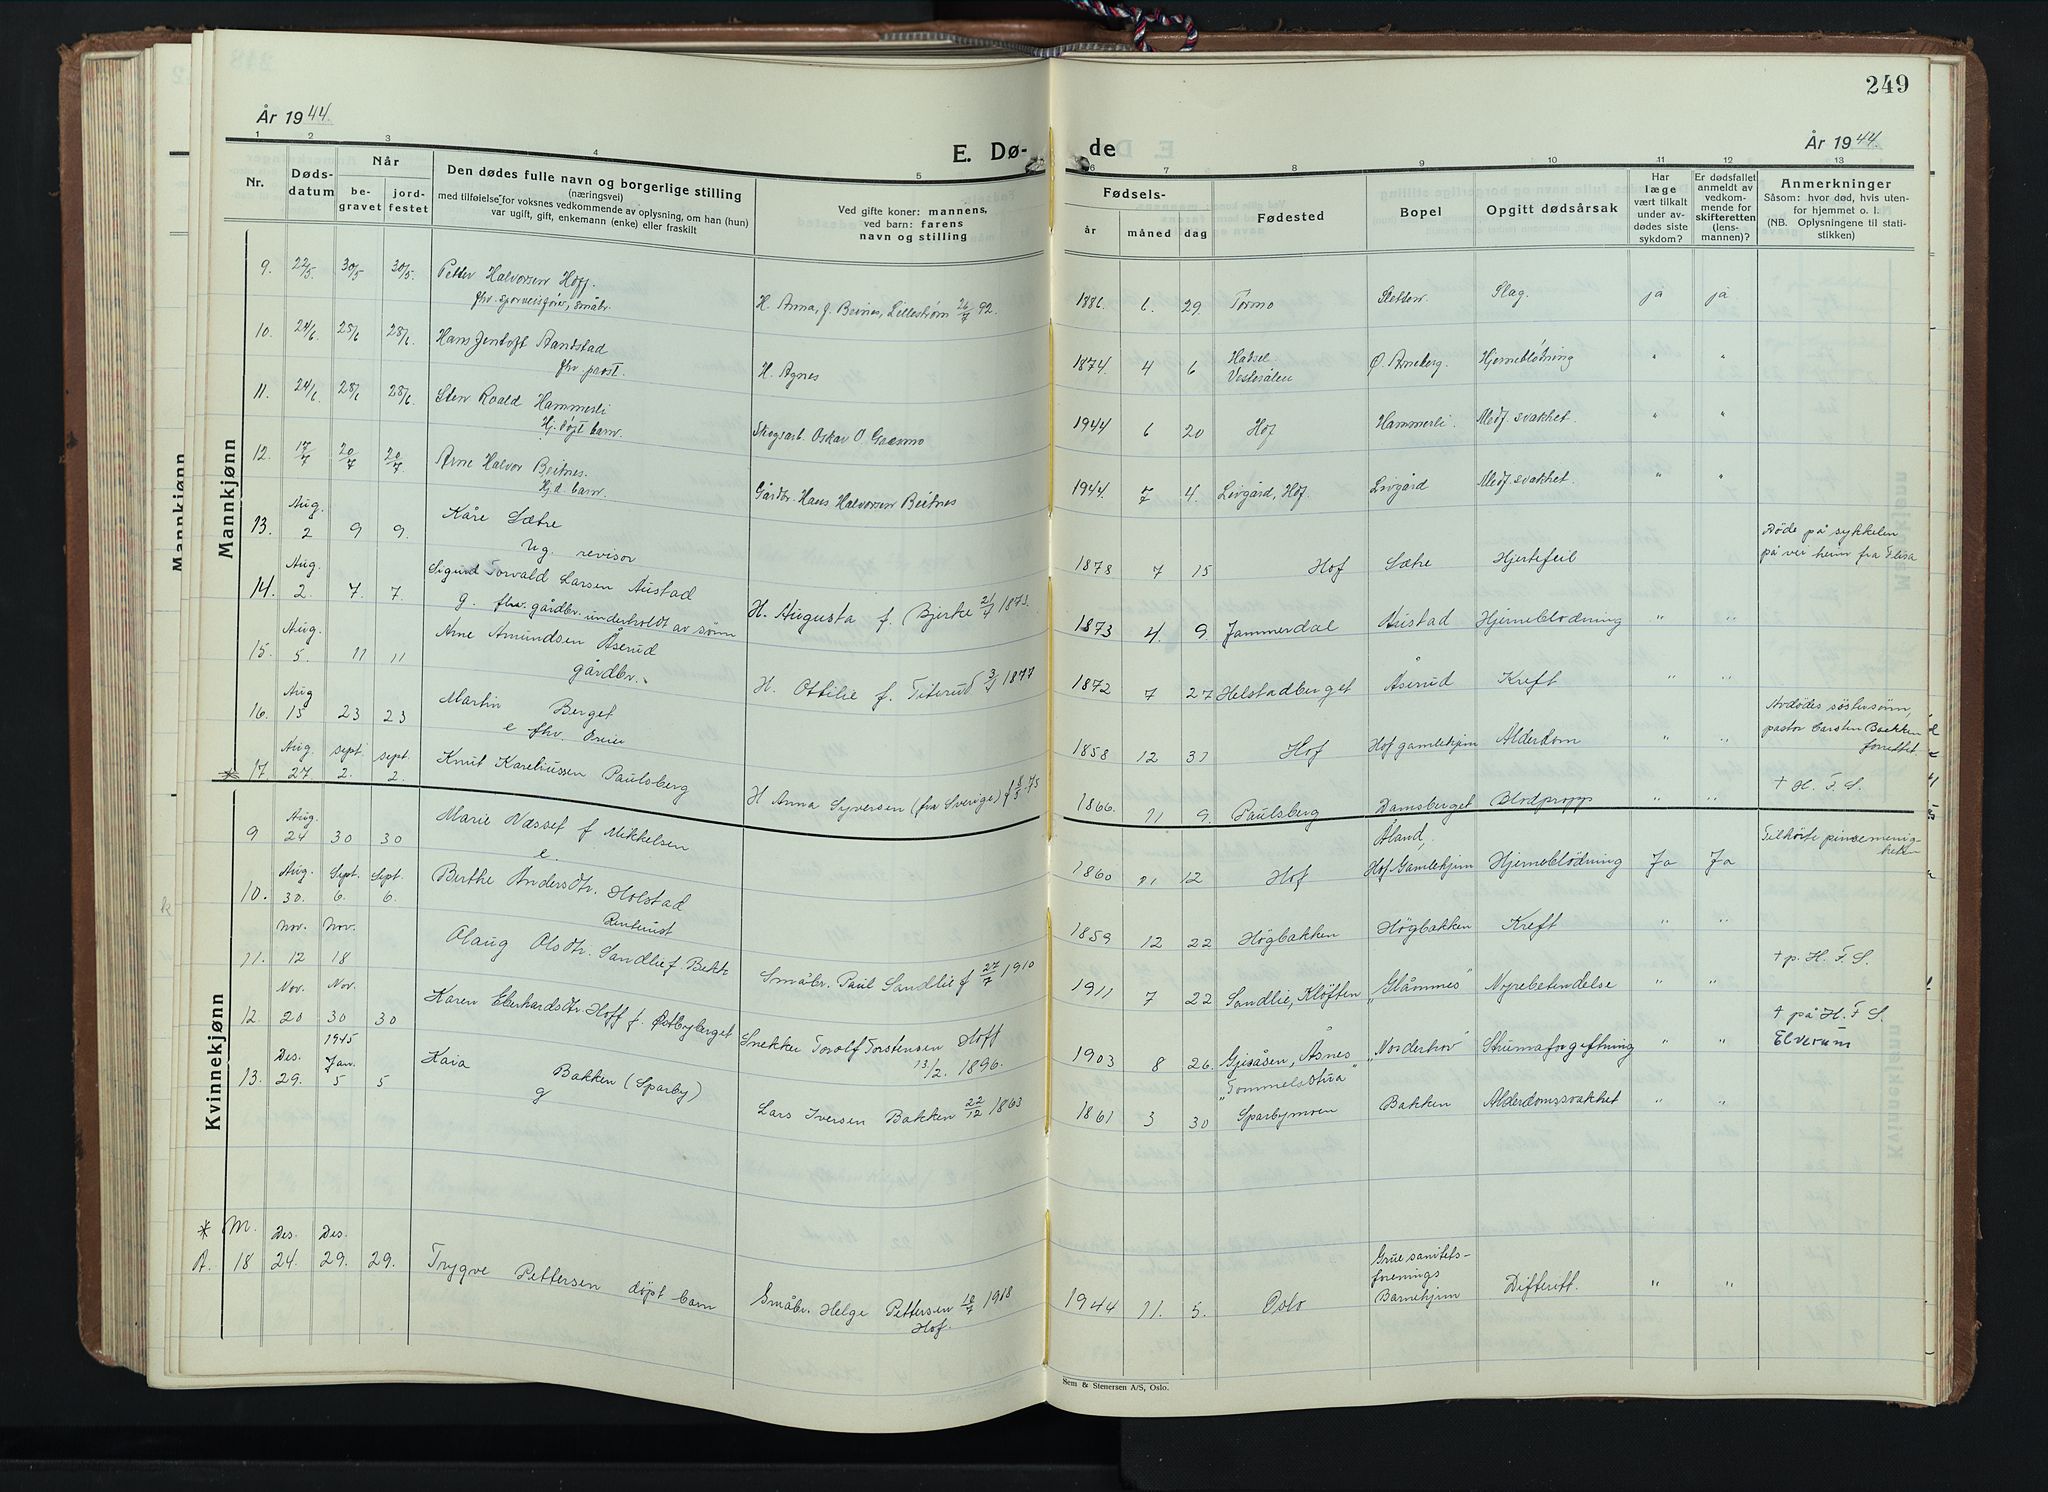 249
År 1944.
År 1944.
E. Dø-
de
1 2 3 4 5 6 7 8 9 10 11 12 13
Nr.
Døds-
datum
Når
be-
gravet
jord-
festet
Den dødes fulle navn og borgerlige stilling
(næringsvei)
med tilføielse for voksnes vedkommende av oplysning, om han (hun)
var ugift, gift, enkemann (enke) eller fraskilt
Ved gifte koner: mannens,
ved barn: farens
navn og stilling
Fødsels-
år måned dag
Fødested
Bopel
Opgitt dødsårsak
Har
læge
vært tilkalt
under av-
dødes siste
sykdom?
Er dødsfallet
anmeldt av
vedkom-
mende for
skifteretten
(lens-
mannen)?
Anmerkninger
Såsom: hvor død, hvis uten-
for hjemmet o. l.
(NB. Oplysningene til stati-
stikken)
Mannkjønn
Mannkjønn
9. 22/5 30/5 30/5. Petter Halvorsen Hoff.
fhv. sporveisfører, småbr. H. Anna, f. Beines, Lillestrøm 26/7 92. 1886. 6. 29. Tormo Sletten. Slag. ja ja
10. 24/6 28/6 28/6. Hans Jentoft Aandstad
fhv prost. H. Agnes 1874. 4 6 Hadsel. Vesterålen Ø. Arneberg. Hjerneblødning " "
11. 24/6. 28/6 28/6. Sten Roald Hammerli
Hj. døpt barn. Skogsarb. Oskar O Grasmo 1944 6 20 Hof Hammerli. Medf. svakhet. " "
12. 17/7 20/7 20/7 Arne Halvor Beitnes.
Hj.d. barn. Gårdbr. Hans Halvorsen Beitnes 1944. 7 4. Livgård, Hof. Livgård Medf. svakhet. " "
13. Aug. 2 9 9. Kåre Sætre
Ug. revisor 1878 7 15 Hof Sætre Hjertefeil Døde på sykkelen
på vei heim fra Flisa
14. Aug. 2. 7. 7. Sigurd Torvald Larsen Austad
g. fhv. gårdbr. underholdt av sønn H. Augusta f. Bjerke 21/4 1873. 1873 4. 9. Jammerdal Austad Hjerneblødning " "
15. Aug. 5. 11 11 Arne Amundsen Åserud
gårdbr. H. Ottilie f. Titerud 3/4 1877 1872 7 27 Helstadberget Åserud Kreft " "
16. Aug 15 23 23 Martin Berget
e fhv. 1858 12 Hof Hof gamlehjem Alderdom " " Avdødes søstersønn,
pastor Carsten Bakken
forrettet.
* 17 Aug. 27 sept. 2. sept. 2. Knut Kareliussen Paulsberg H Anna Syversen (fra Sverige) f 75 1866. 11 9. Paulsberg Damsberget Blodpropp " " † H. F. S.
Kvinnekjønn
9 Aug. 24 30 30 Marie Næsset f. Mikkelsen
e. 1860 11 12 Hof Åland,
Hof Gamlehjem Hjerneblödning Ja Ja Tilhörte pinsemenig-
heten
10. Aug. 30. Sept. 6. Sept. 6. Berthe Andersdtr. Holstad
Rentenist 1859 12 22 Högbakken Högbakken Kreft " "
11. Nov. 12 Nov. 18 Olaug Olsdtr. Sandlie f. Bekk Småbr. Paul Sandlie f 27/7 1910 1911 7 22 Sandlie, Klöften "Glåmnes" Nyrebetendelse " " † p. H. F. S.
12. Nov. 20 Nov. 30 30 Karen Eberhardsdtr. Hoff f. Østbyberget Snekker Torolf Torstensen Hoff
13/2. 1896. 1903 8 26. Gjesåsen, Åsnes
"Tommelsstua" "Norderhov" Strumaforgiftning " " † på H. F S.
Elverum
13. Des. 29. 1945 Jan. 5 5 Kaia Bakken (Sparby)
g Lars Iversen Bakken 22/12 1863 1861 3 30 Sparbymoen Bakken Alderdomssvakhet " "
* M.
A. 18 Des. 24. Des. 29. 29. Trygve Pettersen döpt barn Småbr. Helge Pettersen 10/7 1918
Hof. 1944 11. 5. Oslo Grue sanitets-
forenings
Barnehjem Difteritt. " "
Sem & Stenersen A/S, Oslo.